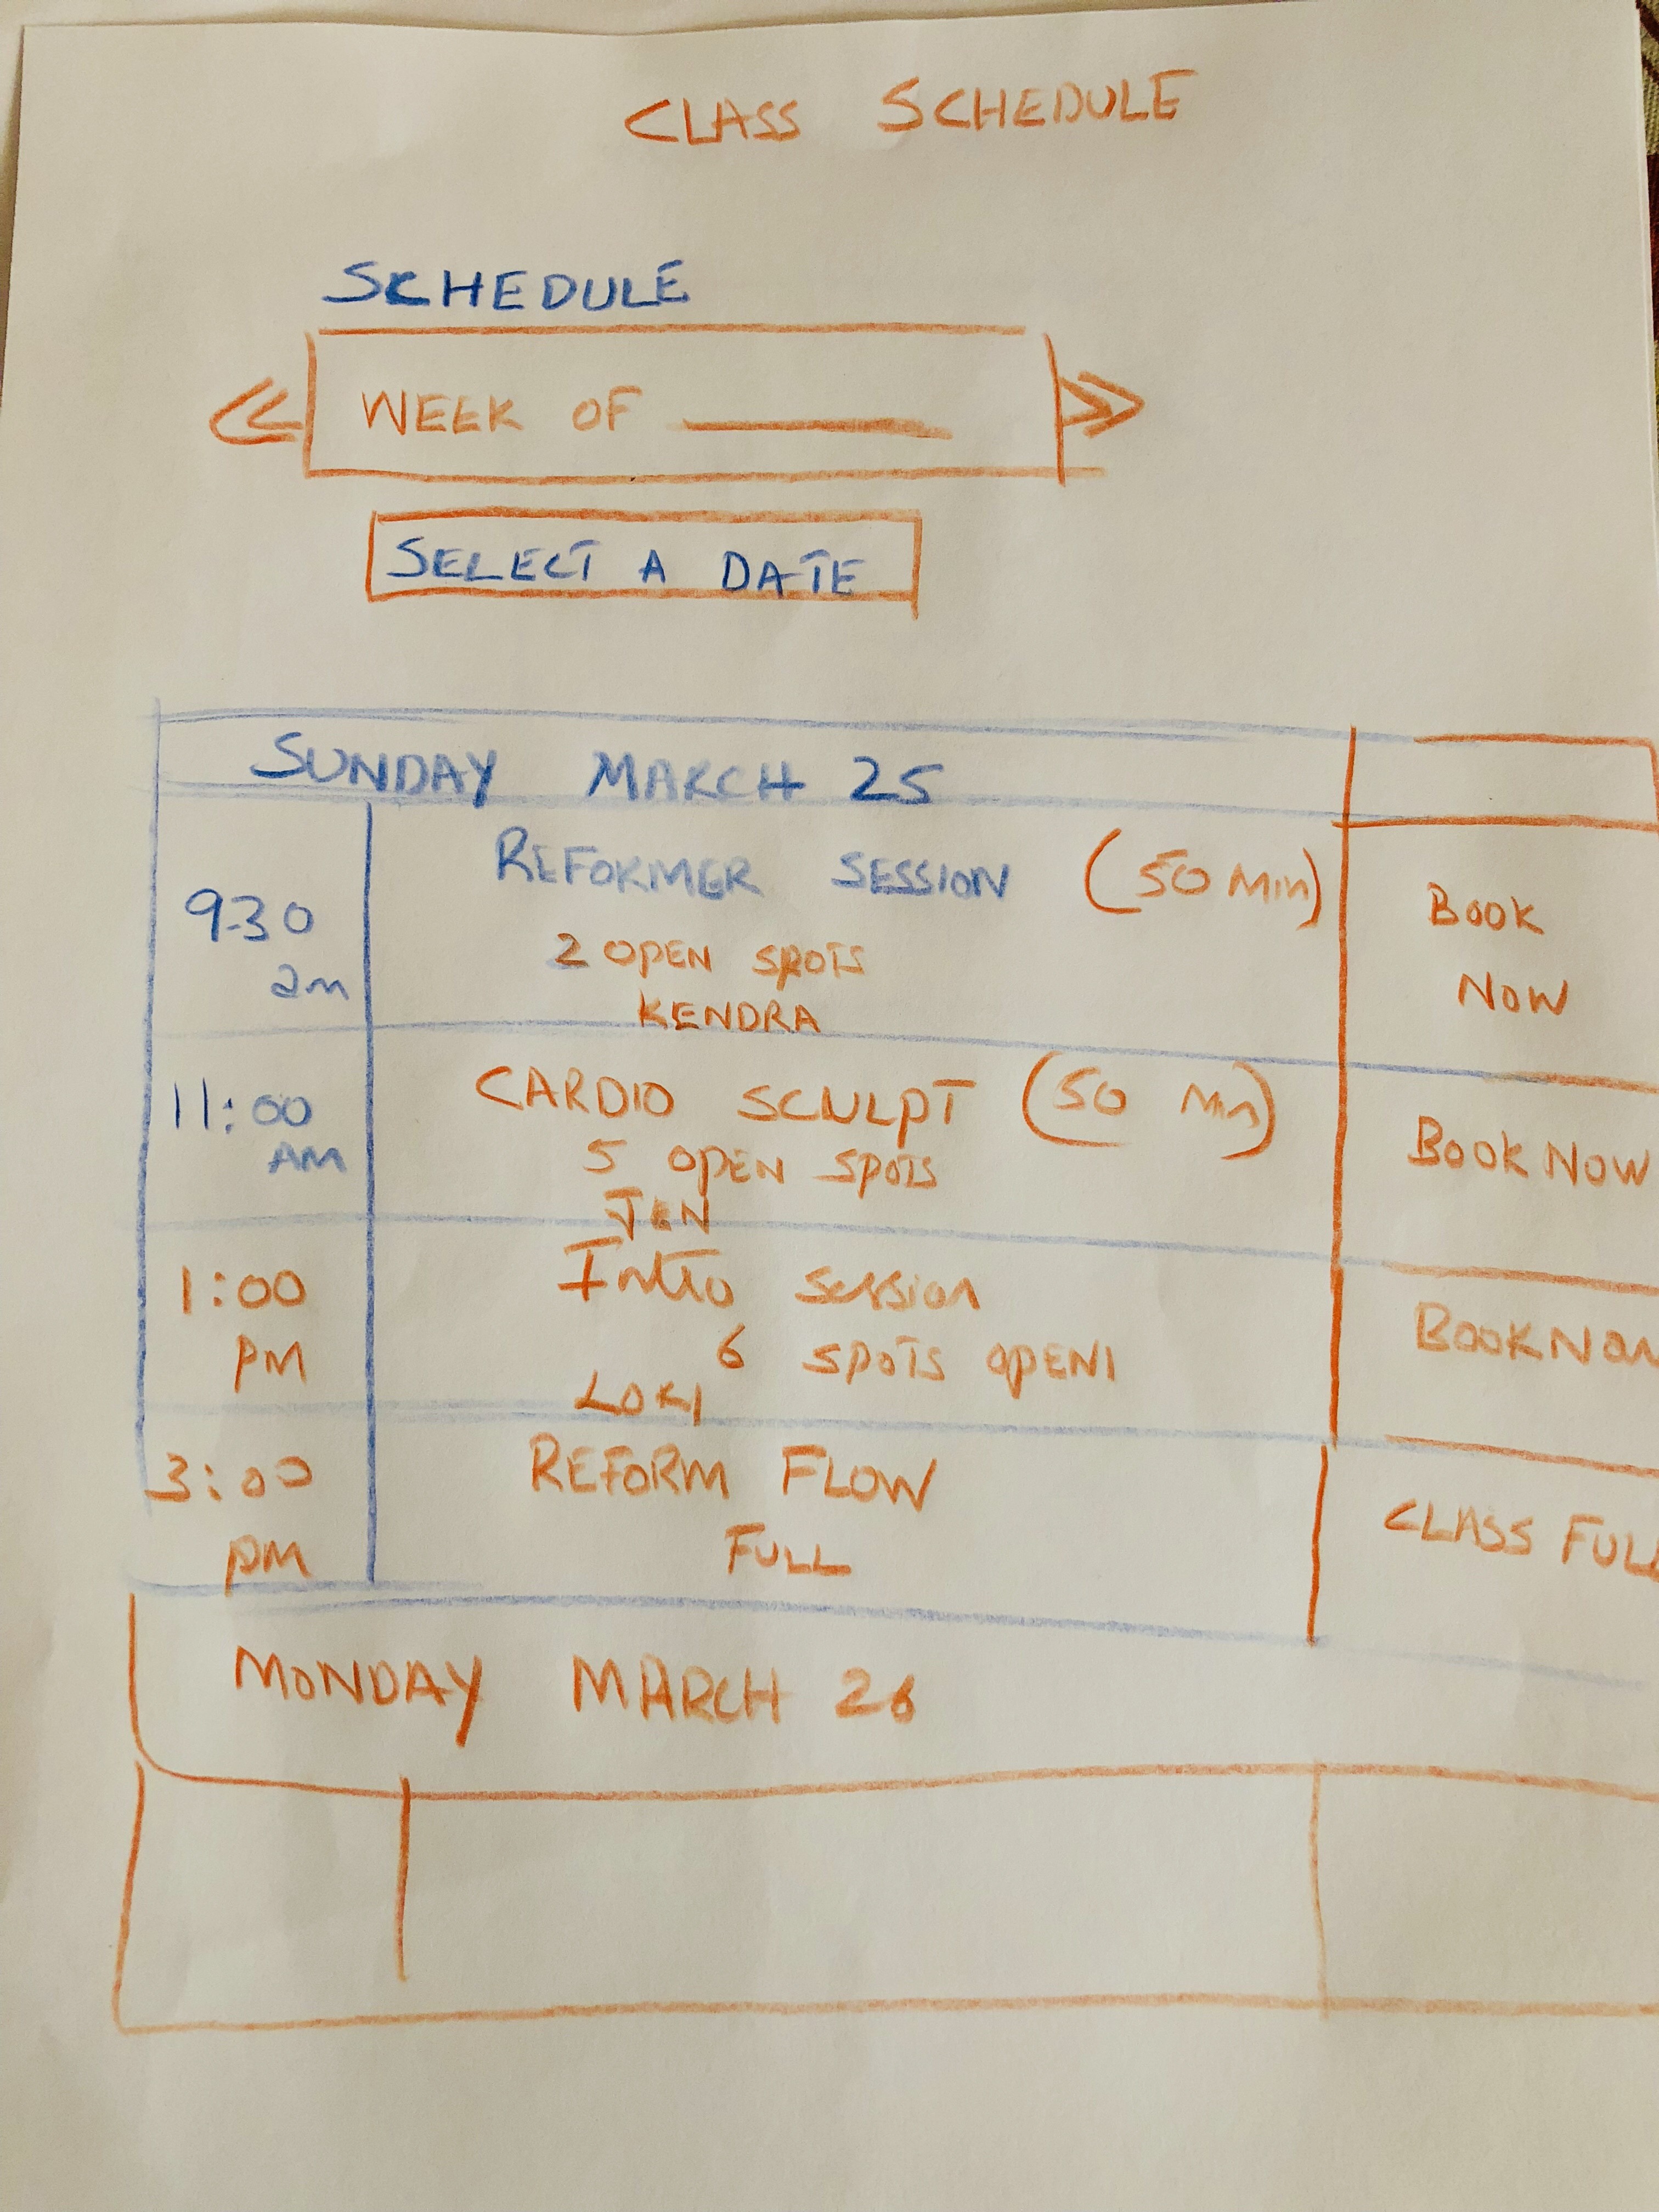 CLASS SCHEDULE
SCHEDULE
<< WEEK OF ______ >>
SELECT A DATE
SUNDAY MARCH 25
9-30 am
REFORMER SESSION (50 Min)
2 OPEN SPOTS
KENDRA
BOOK
NOW
11:00 AM
CARDIO SCULPT (50 Min)
5 OPEN SPOTS
JEN
BOOK NOW
1:00 PM
Intro session
6 SPOTS OPEN!
LOKI
BOOK NOW
3:00 pm
REFORM FLOW
FULL
CLASS FULL
MONDAY MARCH 26